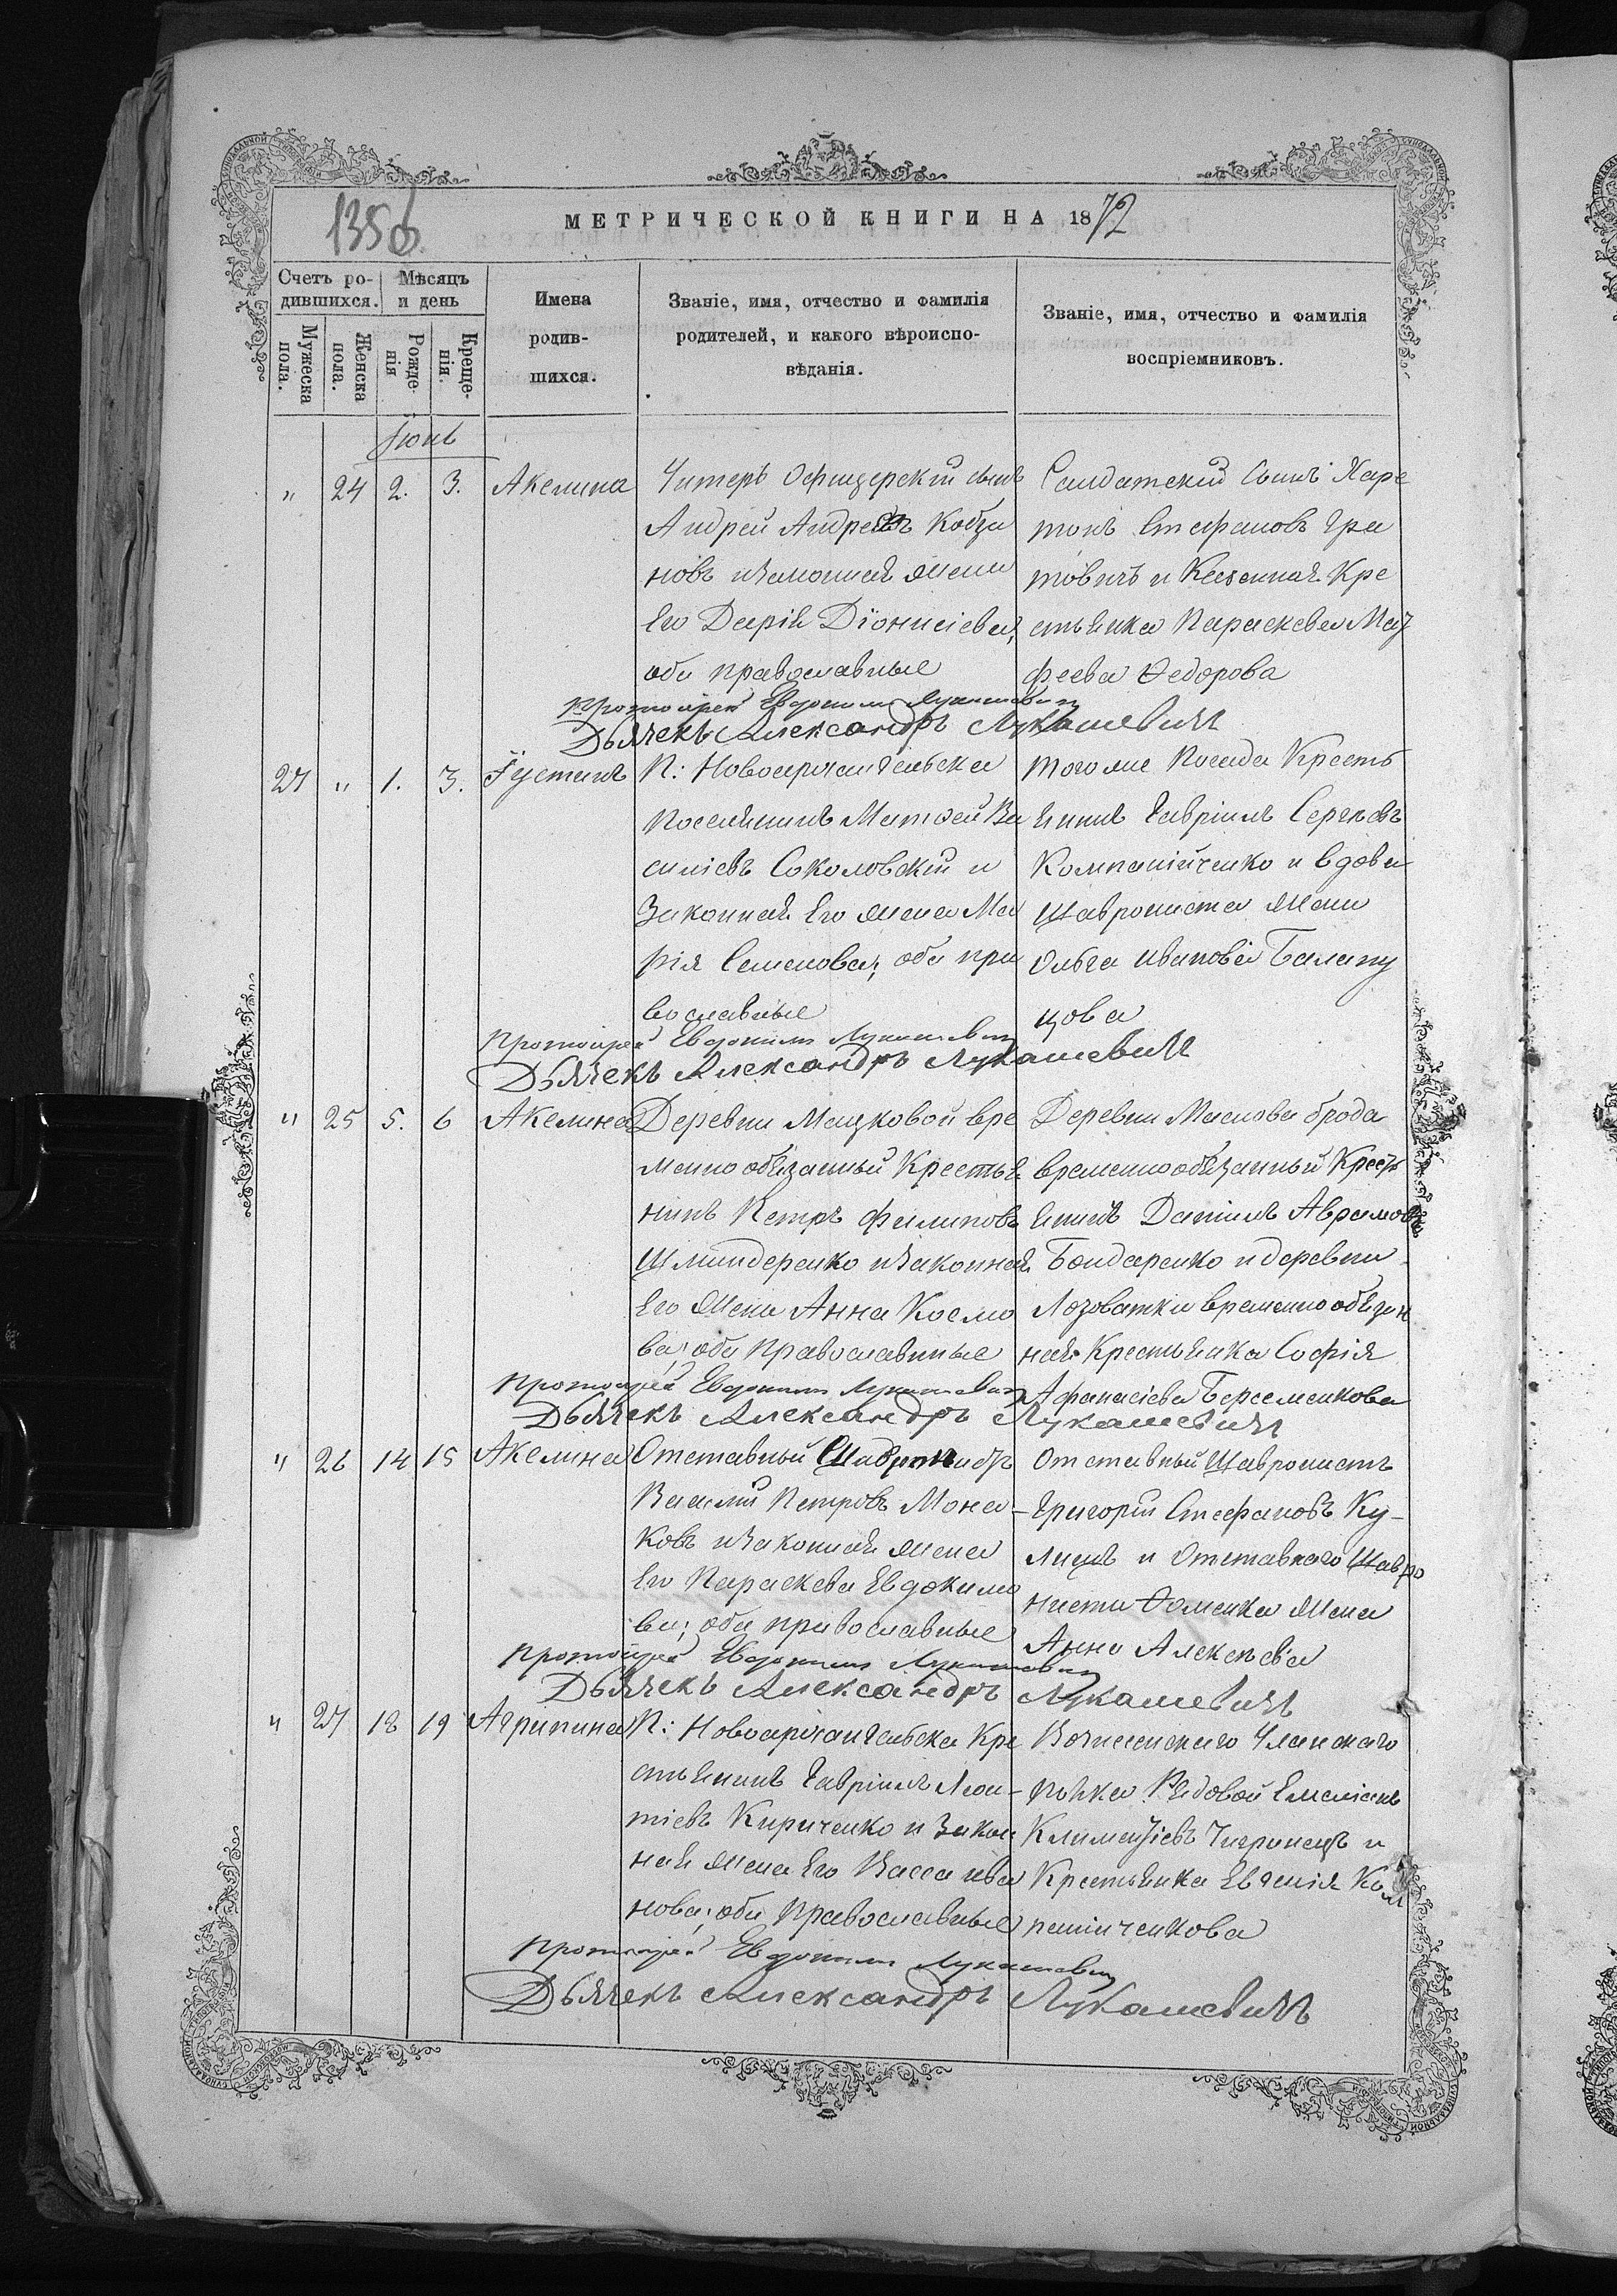 135об.
МЕТРИЧЕСКОЙ КНИГИ НА 1872
Счетъ ро-
дившихся.
Мѣсяцъ
и день
Мужеска
пола.
Женска
пола.
Рожде-
нія
Креще-
нія.
Имена
родив-
шихся.
Званіе, имя, отчество и фамилія
родителей, и какого вѣроиспо-
вѣданія.
Званіе, имя, отчество и фамилія
воспріемниковъ.
Іюнь
" 24 2. 3. Акелина
Унтеръ Офицерскій сынъ
Андрей Андреевъ Кобза
новъ изаконная жена
Его Дарія Діонисіева,
оба православные
Салдатскій Сынъ Хари
тонъ Стефановъ
и Казенная Кре
стьянка Параскева Мат
феева Ѳедорова
Протоіерей Евдокимъ Лукашевич
Дьячекъ Александръ Лукашевичъ
27 " 1. 3. Іустинъ
П: Новоархангельска
Поселянинъ Матѳей Ва
силіевъ Соколовскій и
Законная Его жена Ма
рія Семенова; оба пра
вославные
Того же Посада Кресть
янинъ Гавріилъ Сергѣевъ
Компанійченко и вдова
Щаврониста жена
Ольга Иванова Балану
цова
Протоіерей Евдокимъ Лукашевич
Дьячекъ Александръ Лукашевичъ
" 25 5. 6 Акелина
Деревни Мацковой вре
менно обязанный Крестья
нинъ Петръ Филиповъ
Шлиндеренко изаконная
Его Жена Анна Космо
ва; оба Православные
Деревни Маслова брода
временнообязанный Крест
янинъ Даніилъ Аврамовъ
Бондаренко и деревни
Лозоватки временно обязан
ная Крестьянка Софія
Афанасіева Берсеменкова
Протоіерей Евдокимъ Лукашевич
Дьячекъ Александръ Лукашевичъ
" 26 14 15 Акелина
Отставный
Василій Петровъ Мона-
ковъ изаконная жена
Его Параскева Евдокимо
ва; оба православные
Отставный Щавронистъ
Григорій Стефановъ Ку-
лишъ и Отставнаго Щавро
ниста Ѳоменка Жена
Анна Алексѣева
Протоіерей Евдокимъ Лукашевич
Дьячекъ Александръ Лукашевичъ
" 27 18 19 Агрипина
П: Новоархангельска Кре
стьянинъ Гавріилъ Леон-
тіевъ Кириченко и Закон
ная жена Его Васса Ива
нова; оба Православные
Вознесенскаго Уланскаго
полка Рядовой Емеліанъ
Климентіевъ Чигринецъ и
Крестьянка Евгенія Ком
панійченкова
Протоіерей Евдокимъ Лукашевич
Дьячекъ Александръ Лукашевичъ